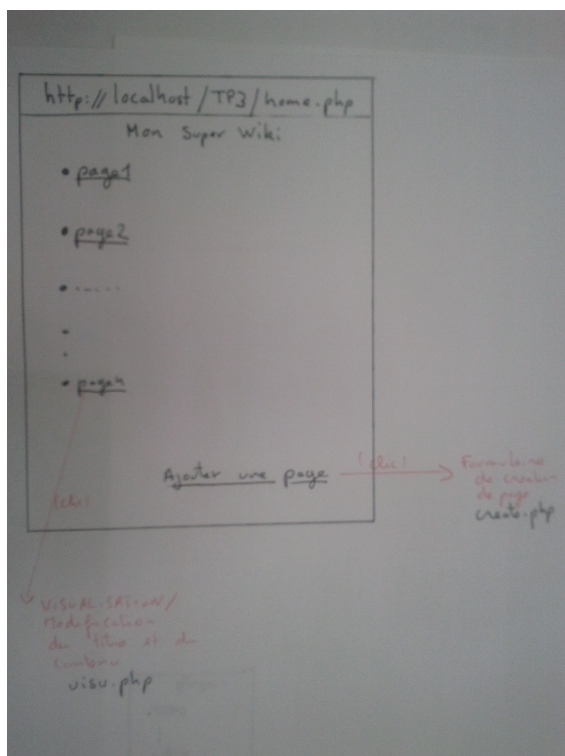 http://localhost/TP3/home.php
Mon Super Wiki
• page1
• page2
• ......
•
•
• pagen
Ajouter une page
(clic)
Formulaire
de création
de page
create.php
(clic)
VISUALISATION/
Modification
du titre et du
contenu
visu.php